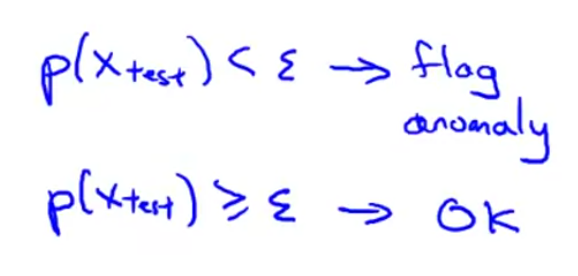 p(x_test) < ε → flag
anomaly
p(x_test) ≥ ε → OK